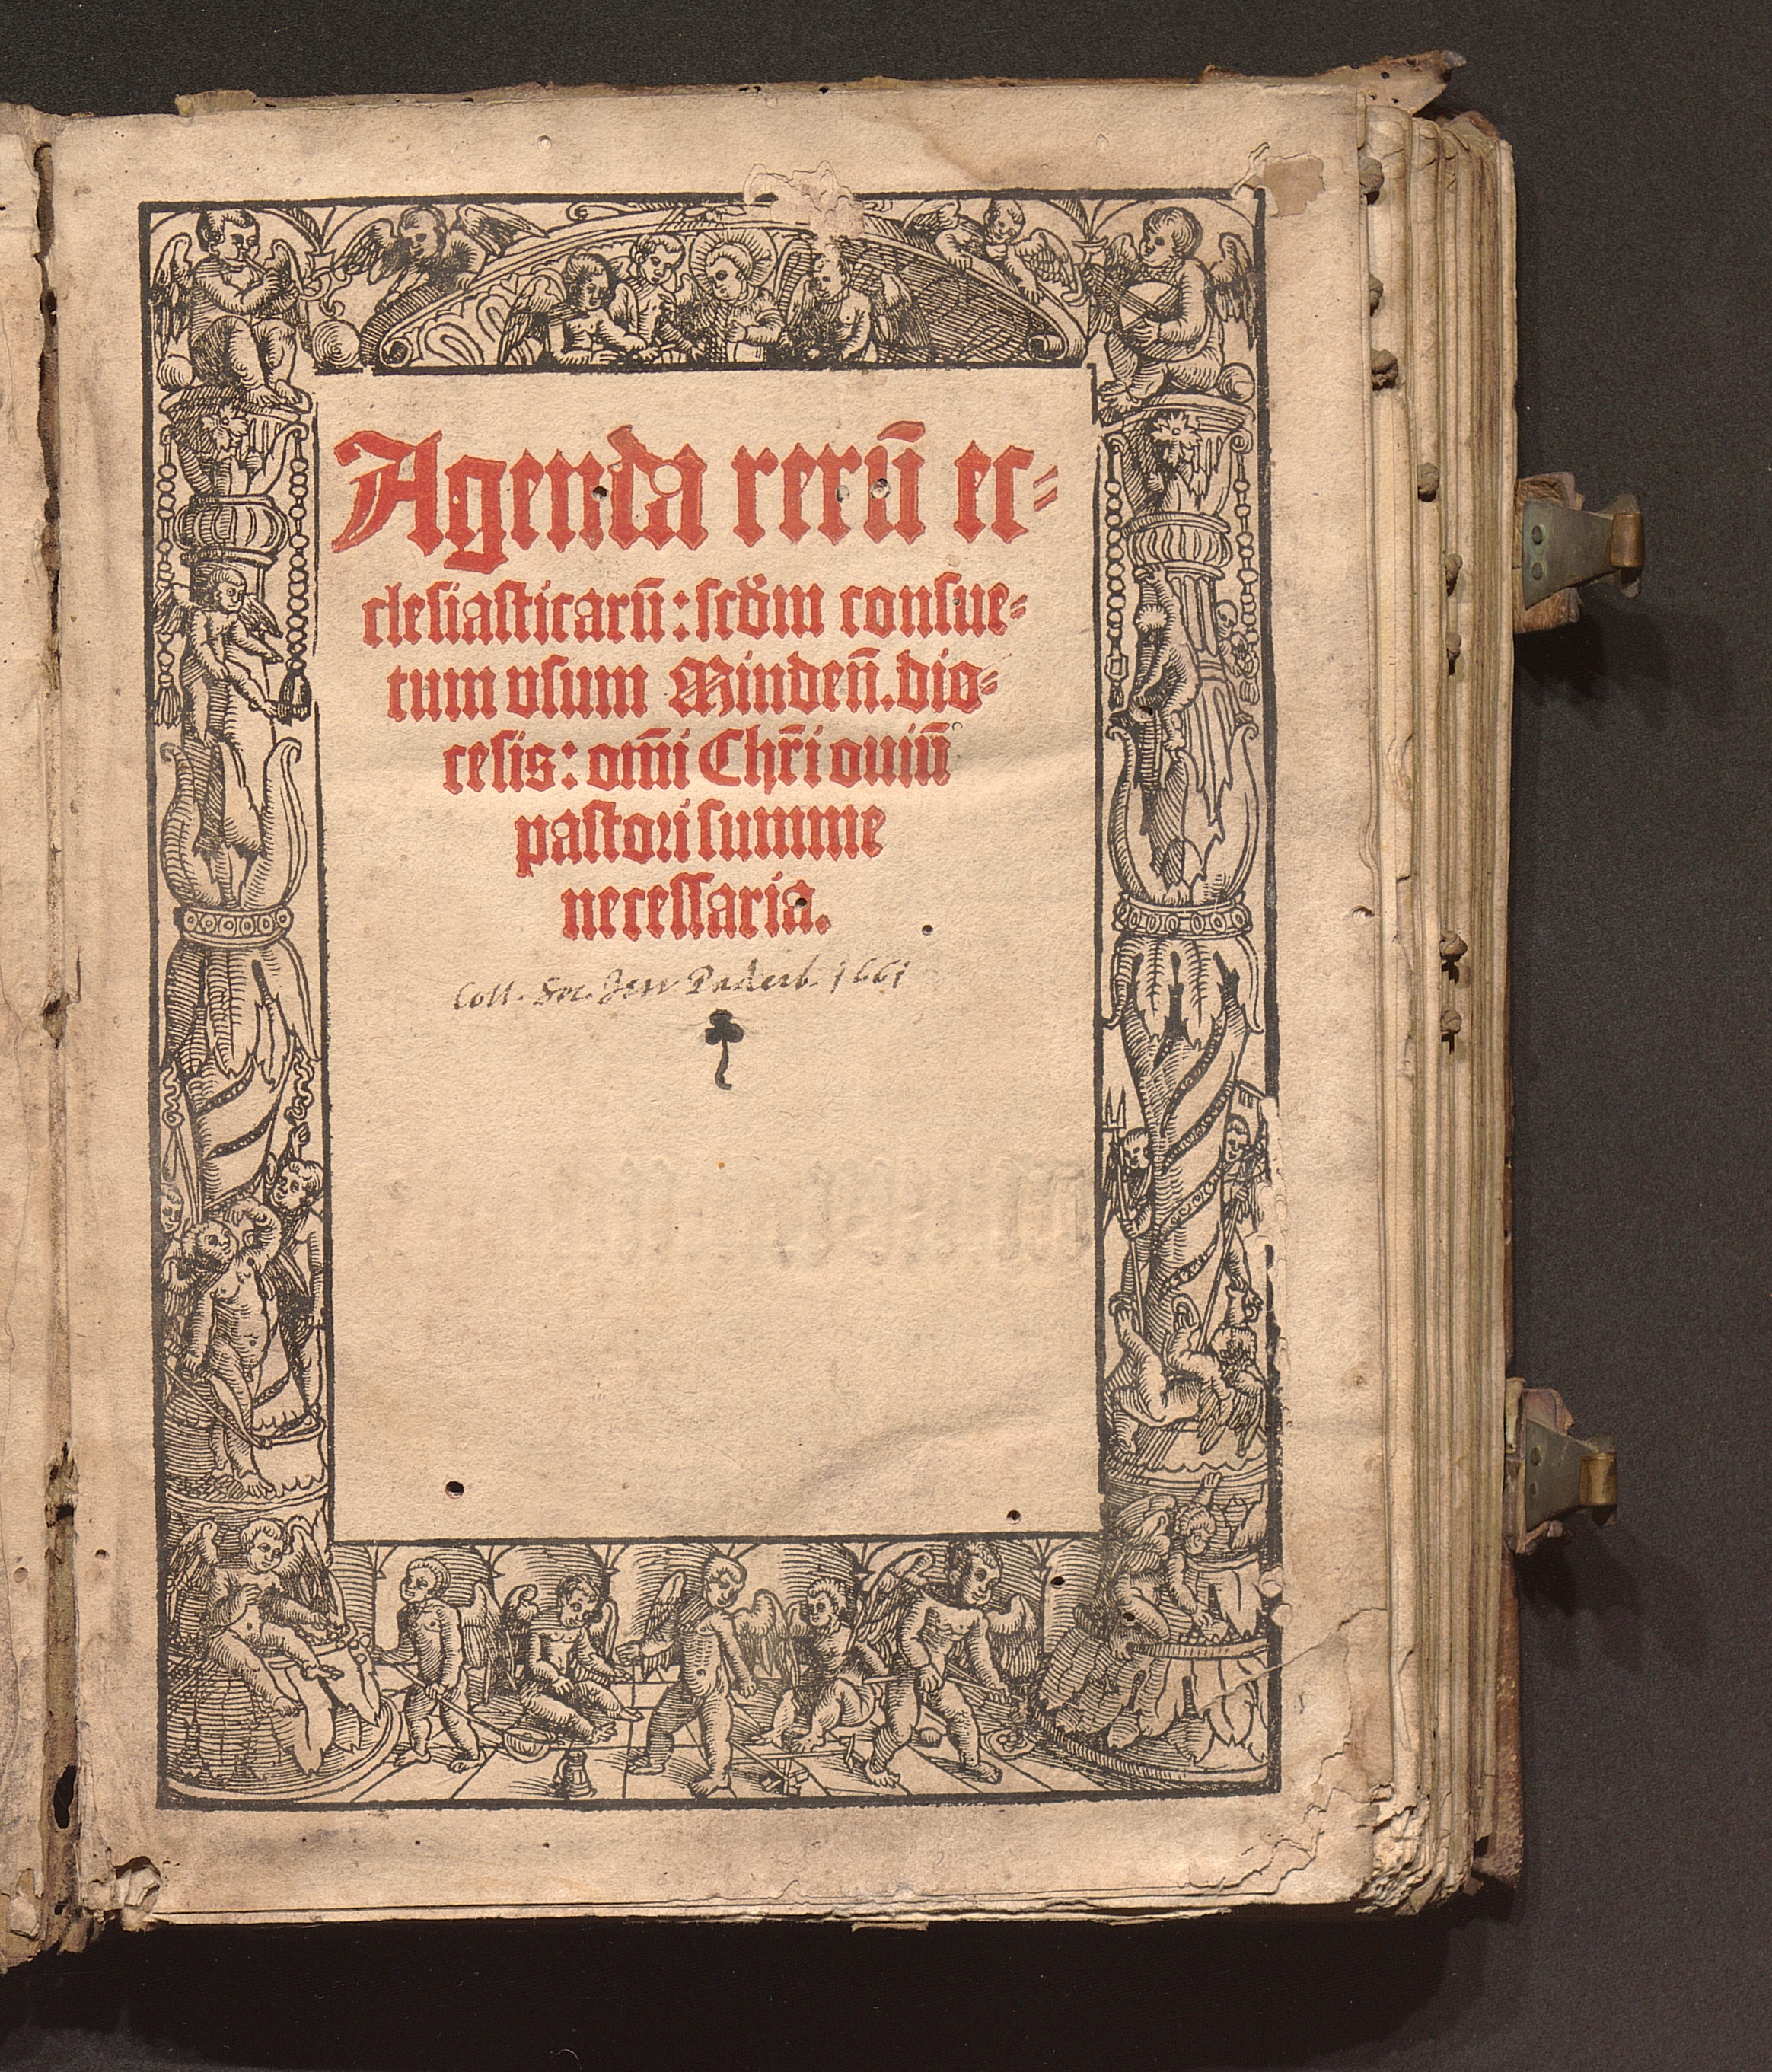 Agenda rerū ec⸗
clesiasticarū: scḋm consue⸗
tum vsum Mindeñ. dio⸗
cesis: om̄i Chr̄i ouiū
pastori summe
necessaria.
Coll. Soc. Jesu Paderb. 1661